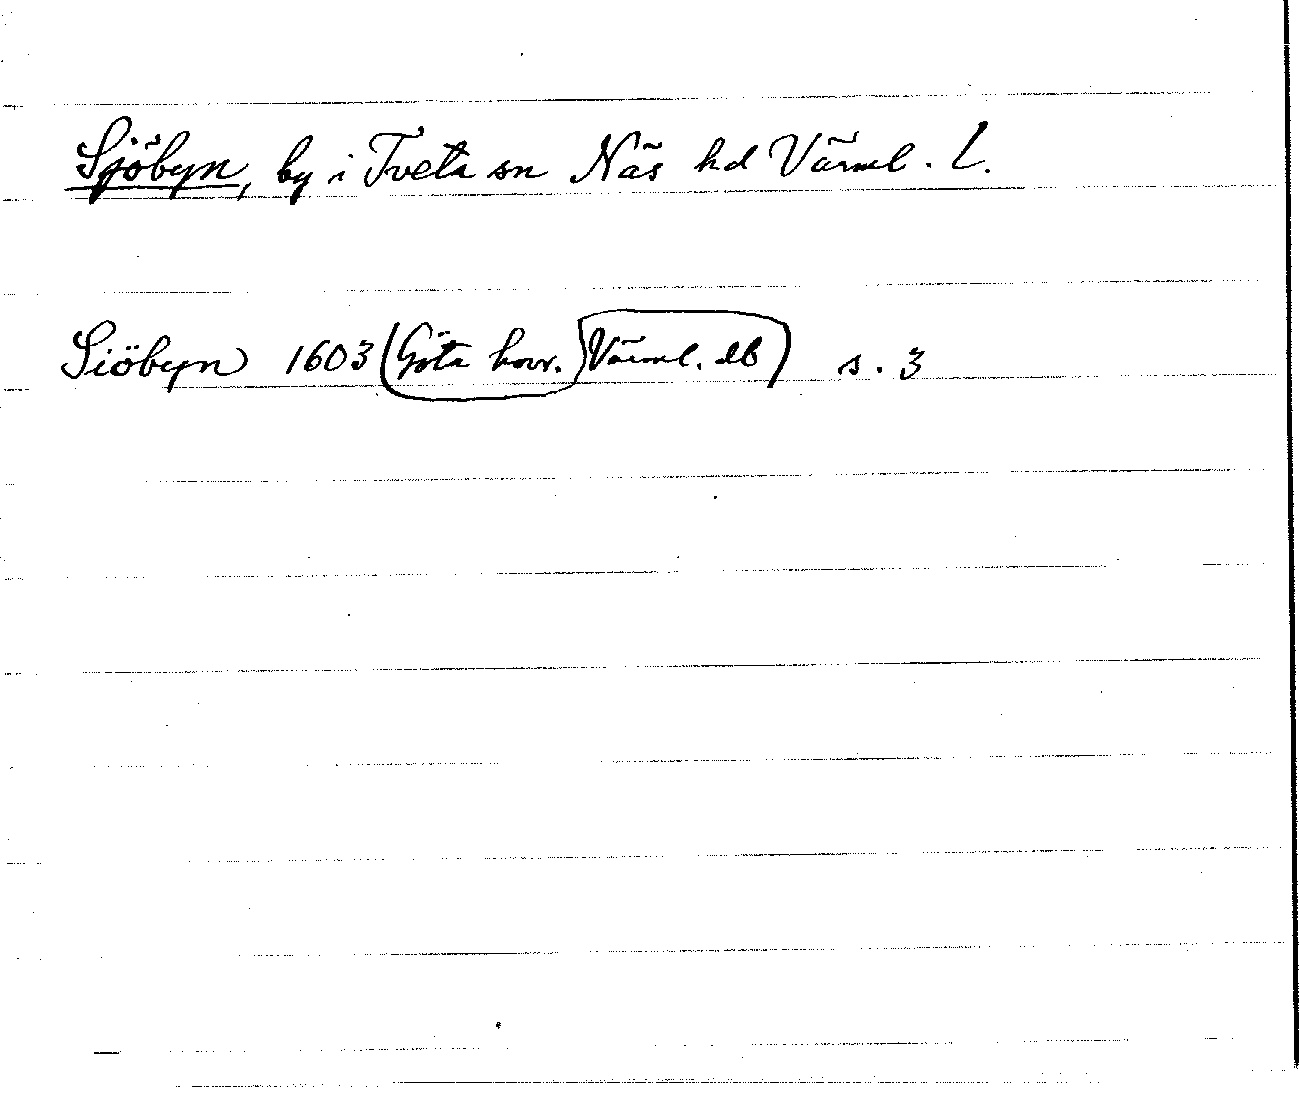 Sjöbyn, by i Tveta sn Näs hd Värml. L.
Siöbyn 1603 (Göta hovr. Värml. db) s. 3